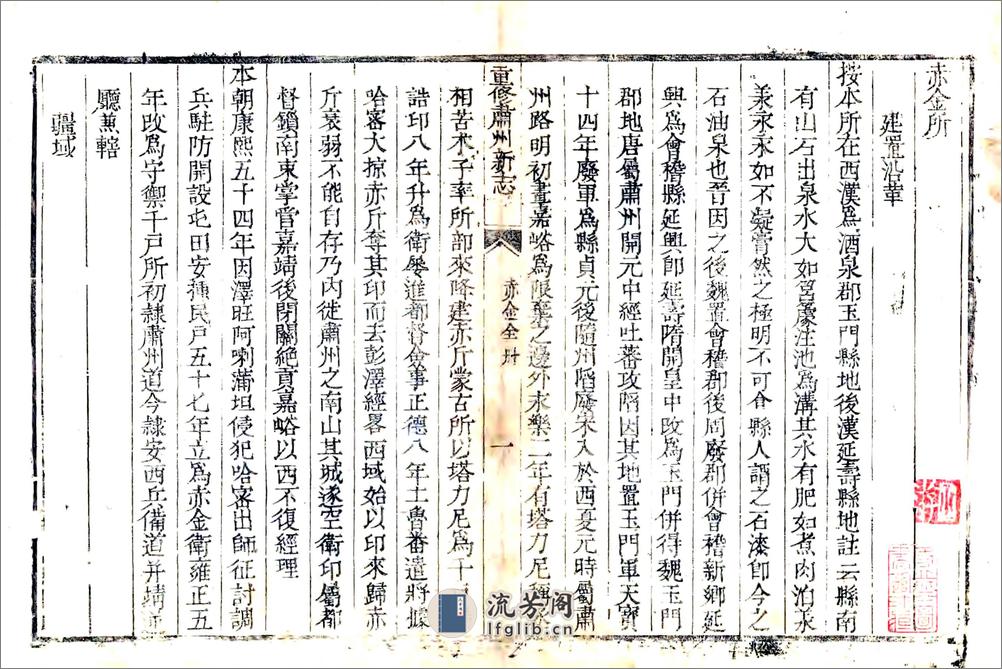 赤金所
建置沿革
按本所在西漢為酒泉郡玉門縣地後漢延壽縣地註云縣南
有山石出泉水大如筥簴注池為溝其水有肥如煮肉洎羕
羕永永如不凝膏然之極明不可食縣人謂之石漆即今之
石油泉也晉因之後魏置會稽郡後周廢郡併會稽新鄉延
興為會稽縣延興即延壽隋開皇中改為玉門併得魏玉門
郡地唐屬肅州開元中經吐蕃攻陷因其地置玉門軍天寶
十四年廢軍為縣貞元後隨州陷廢宋入於西夏元時屬肅
州路明初畫嘉峪為限棄之邊外永樂二年有塔力尼
重修肅州新志
赤金全冊
一
相苦术子率所部來降建赤斤蒙古所以塔力尼為千
誥印八年升為衛屢進都督僉事正德八年土魯番遣將據
哈密大掠赤斤奪其印而去彭澤經畧西域始以印來歸赤
斤衰弱不能自存乃內徙肅州之南山其城遂空衛印屬都
督鎖南東掌管嘉靖後閉關絕貢嘉峪以西不復經理
本朝康熙五十四年因澤旺阿喇蒲坦侵犯哈密出師征討調
兵駐防開設屯田安種民戶五十七年立為赤金衛雍正五
年改為守禦千戶所初隸肅州道今隸安西兵備道并靖
廳兼轄
疆域
流芳阁
lfglib.cn